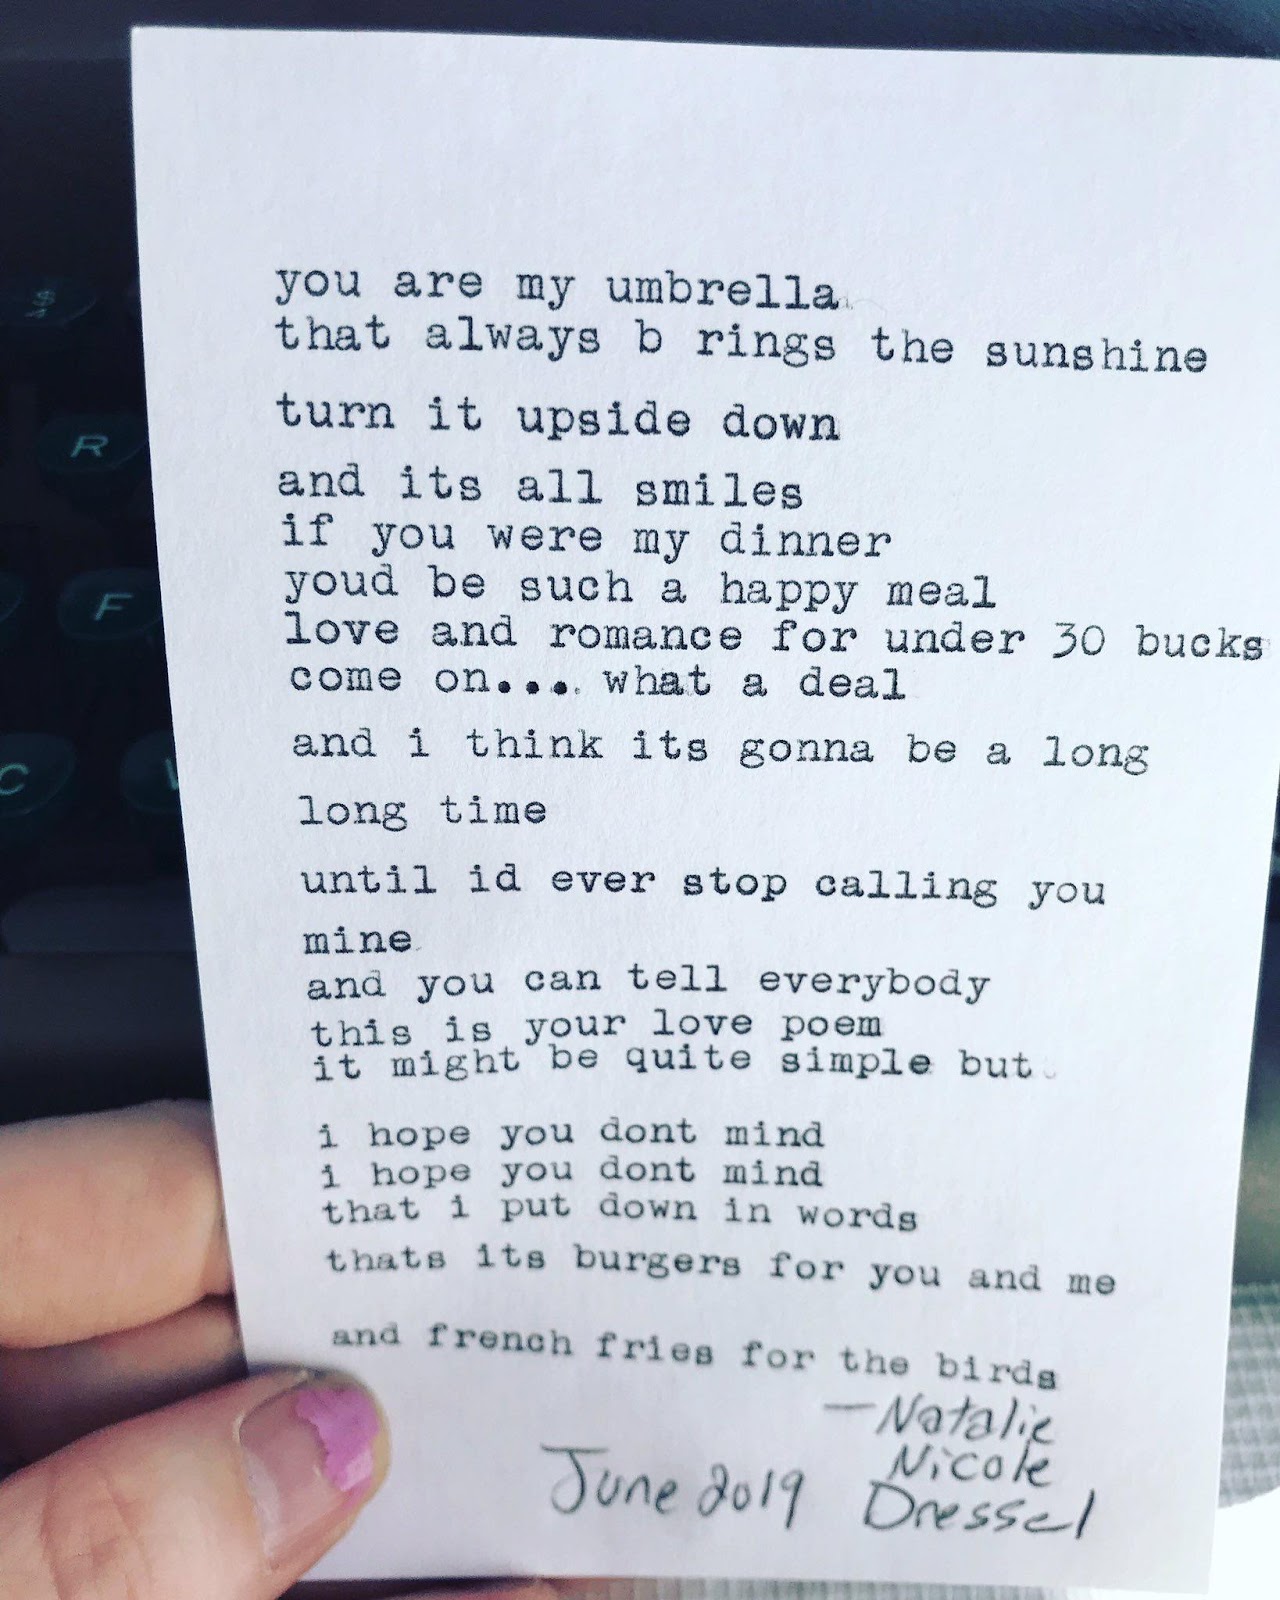 you are my umbrella
that always b rings the sunshine
turn it upside down
and its all smiles
if you were my dinner
youd be such a happy meal
love and romance for under 30 bucks
come on.... what a deal
and i think its gonna be a long
long time
until id ever stop calling you
mine
and you can tell everybody
this is your love poem
it might be quite simple but
i hope you dont mind
i hope you dont mind
that i put down in words
thats its burgers for you and me
and french fries for the birds
—Natalie
Nicole
June 2019 Dressel
$
R
F
C
V